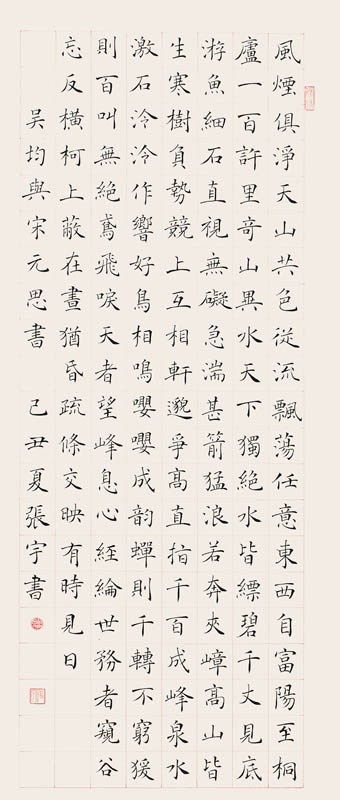 風煙俱淨天山共色從流飄蕩任意東西自富陽至桐
廬一百許里奇山異水天下獨絕水皆縹碧千丈見底
游魚細石直視無礙急湍甚箭猛浪若奔夾嶂高山皆
生寒樹負勢競上互相軒邈爭高直指千百成峰泉水
激石泠泠作響好鳥相鳴嚶嚶成韵蟬則千轉不窮猨
則百叫無絕鳶飛唳天者望峰息心經綸世務者窺谷
忘反橫柯上蔽在晝猶昏疏條交映有時見日
吳均與宋元思書 己丑夏張宇書